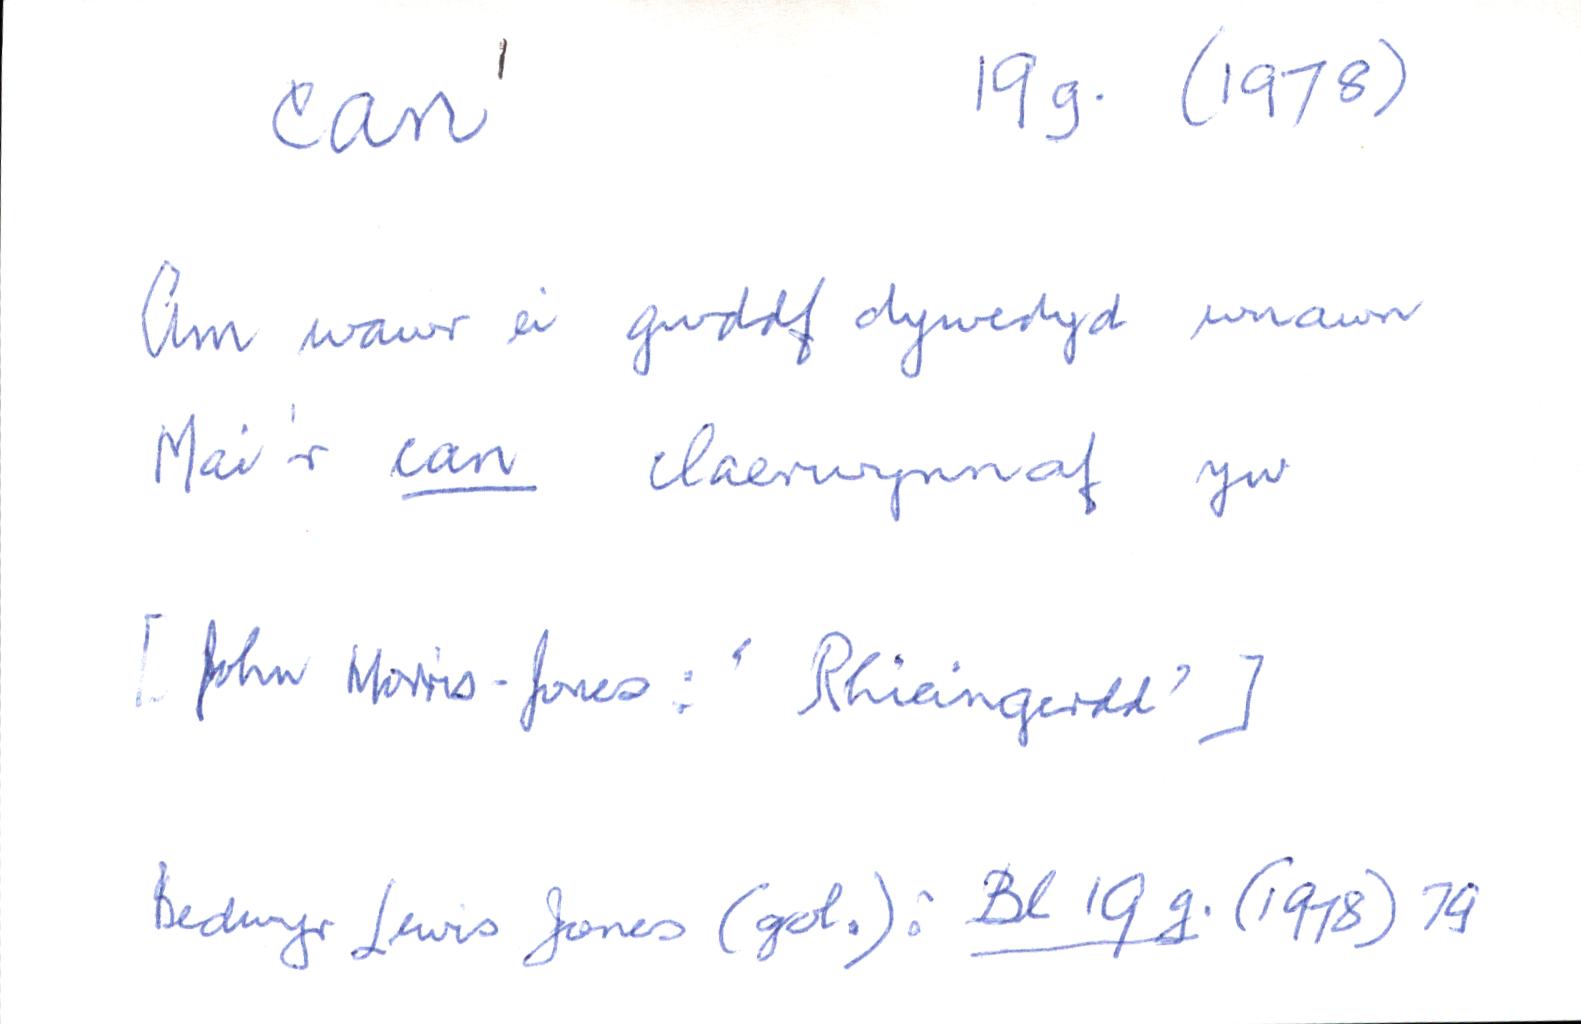 can¹ 19g. (1978)
Am wawr ei gwddf dywedyd wnawn
Mai'r can claerwynnaf yw
[John Morris-Jones: 'Rhieingerdd']
Bedwyr Lewis Jones (gol.): Bl 19g. (1978) 79